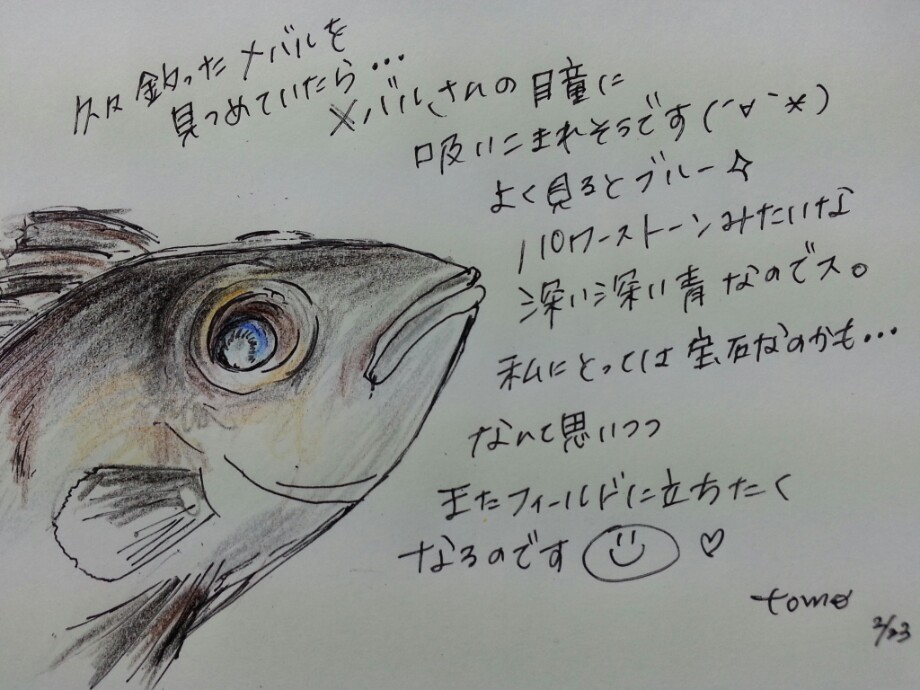 久々 釣ったメバルを
見つめていたら…
メバルさんの目童に
吸いこまれそうです(´∀｀*)
よく見るとブルー☆
パワーストーンみたいな
深い深い青なのでス。
私にとっては宝石なのかも…
なんて思いつつ
またフィールドに立ちたく
なるのです ♡
tomo
2/23